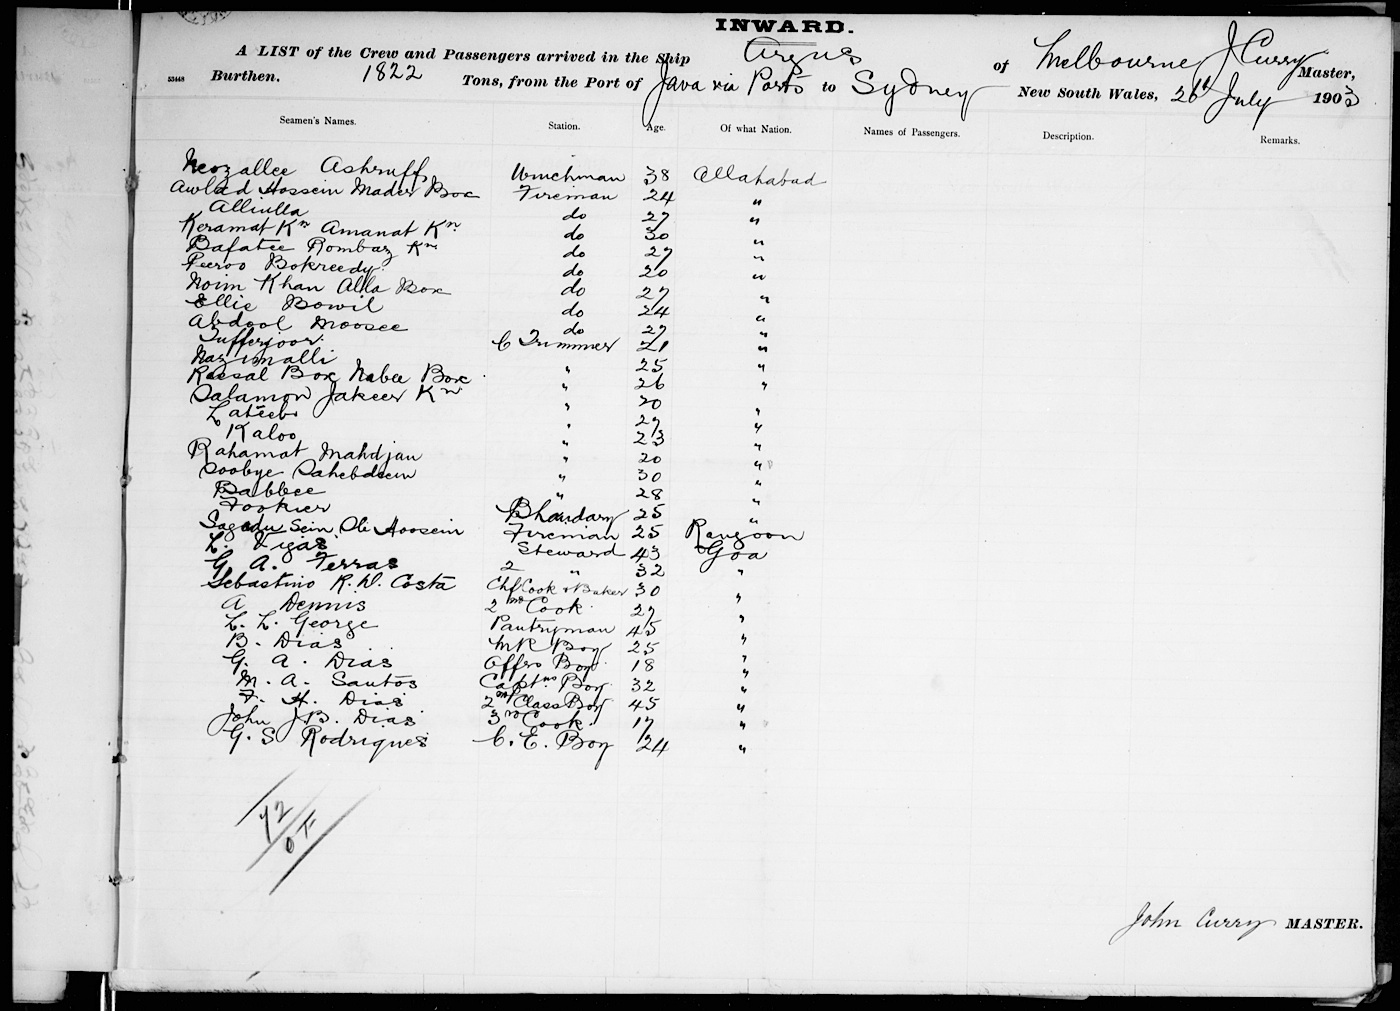 INWARD.
A LIST of the Crew and Passengers arrived in the Ship Argus of Melbourne J Curry Master,
53448 Burthen. 1822 Tons, from the Port of Java via Ports to Sydney New South Wales, 26th July 1903
Seamen's Names. Station. Age. Of what Nation. Names of Passengers. Description. Remarks.
Neozallee Ashruff Winchman 38 Allahabad
Awlad Hossein Mader Box Fireman 24 "
Alliulla do 27 "
Keramat Kn Amanat Kn do 30 "
Bafatee Rombaz Kn do 27 "
Peeroo Bokreedy do 20 "
Noim Khan Alla Box do 27 "
Ellie Bowil do 24 "
Abdool Moosee do 27 "
Tufferjoor C Trimmer 21 "
Nazimalli " 25 "
Rassal Box Nabee Box " 26 "
Salamon Jakeer Kn " 20 "
Lateeb " 27 "
Kaloo " 23 "
Rahamat Mahdjan " 20 "
Soobye Sahebdeen " 30 "
Babbee " 28 "
Fookier Bhandary 25 "
Sagedu Sein Ole Hoosein Fireman 25 Rangoon
L. Vigas Steward 43 Goa
G. A. Ferras 2 " 32 "
Sebastino R. D. Costa Chf Cook & Baker 30 "
A Dennis 2nd Cook 27 "
L. L. George Pantryman 45 "
B. Dias MR Boy 25 "
G. A. Dias Offrs Boy 18 "
M. A. Santos Captns Boy 32 "
F. H. Dias 2nd Class Boy 45 "
John J.B. Dias 3rd Cook 17 "
G. S Rodrigues C. E. Boy 24 "
72
John Curry MASTER.